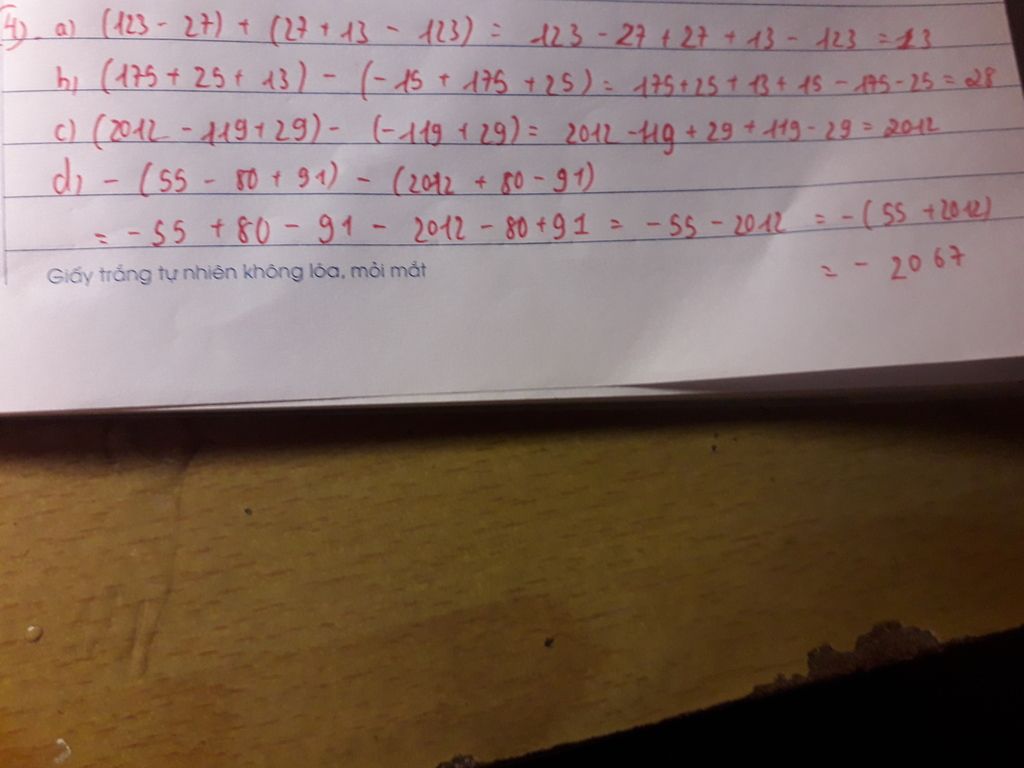 4) a) (123 - 27) + (27 + 13 - 123) = 123 - 27 + 27 + 13 - 123 = 13
b) (175 + 25 + 13) - (-15 + 175 + 25) = 175 + 25 + 13 + 15 - 175 - 25 = 28
c) (2012 - 119 + 29) - (-119 + 29) = 2012 - 119 + 29 + 119 - 29 = 2012
d) - (55 - 80 + 91) - (2012 + 80 - 91)
= -55 + 80 - 91 - 2012 - 80 + 91 = -55 - 2012 = -(55 + 2012)
= - 2067
Giấy trắng tự nhiên không lóa, mỏi mắt